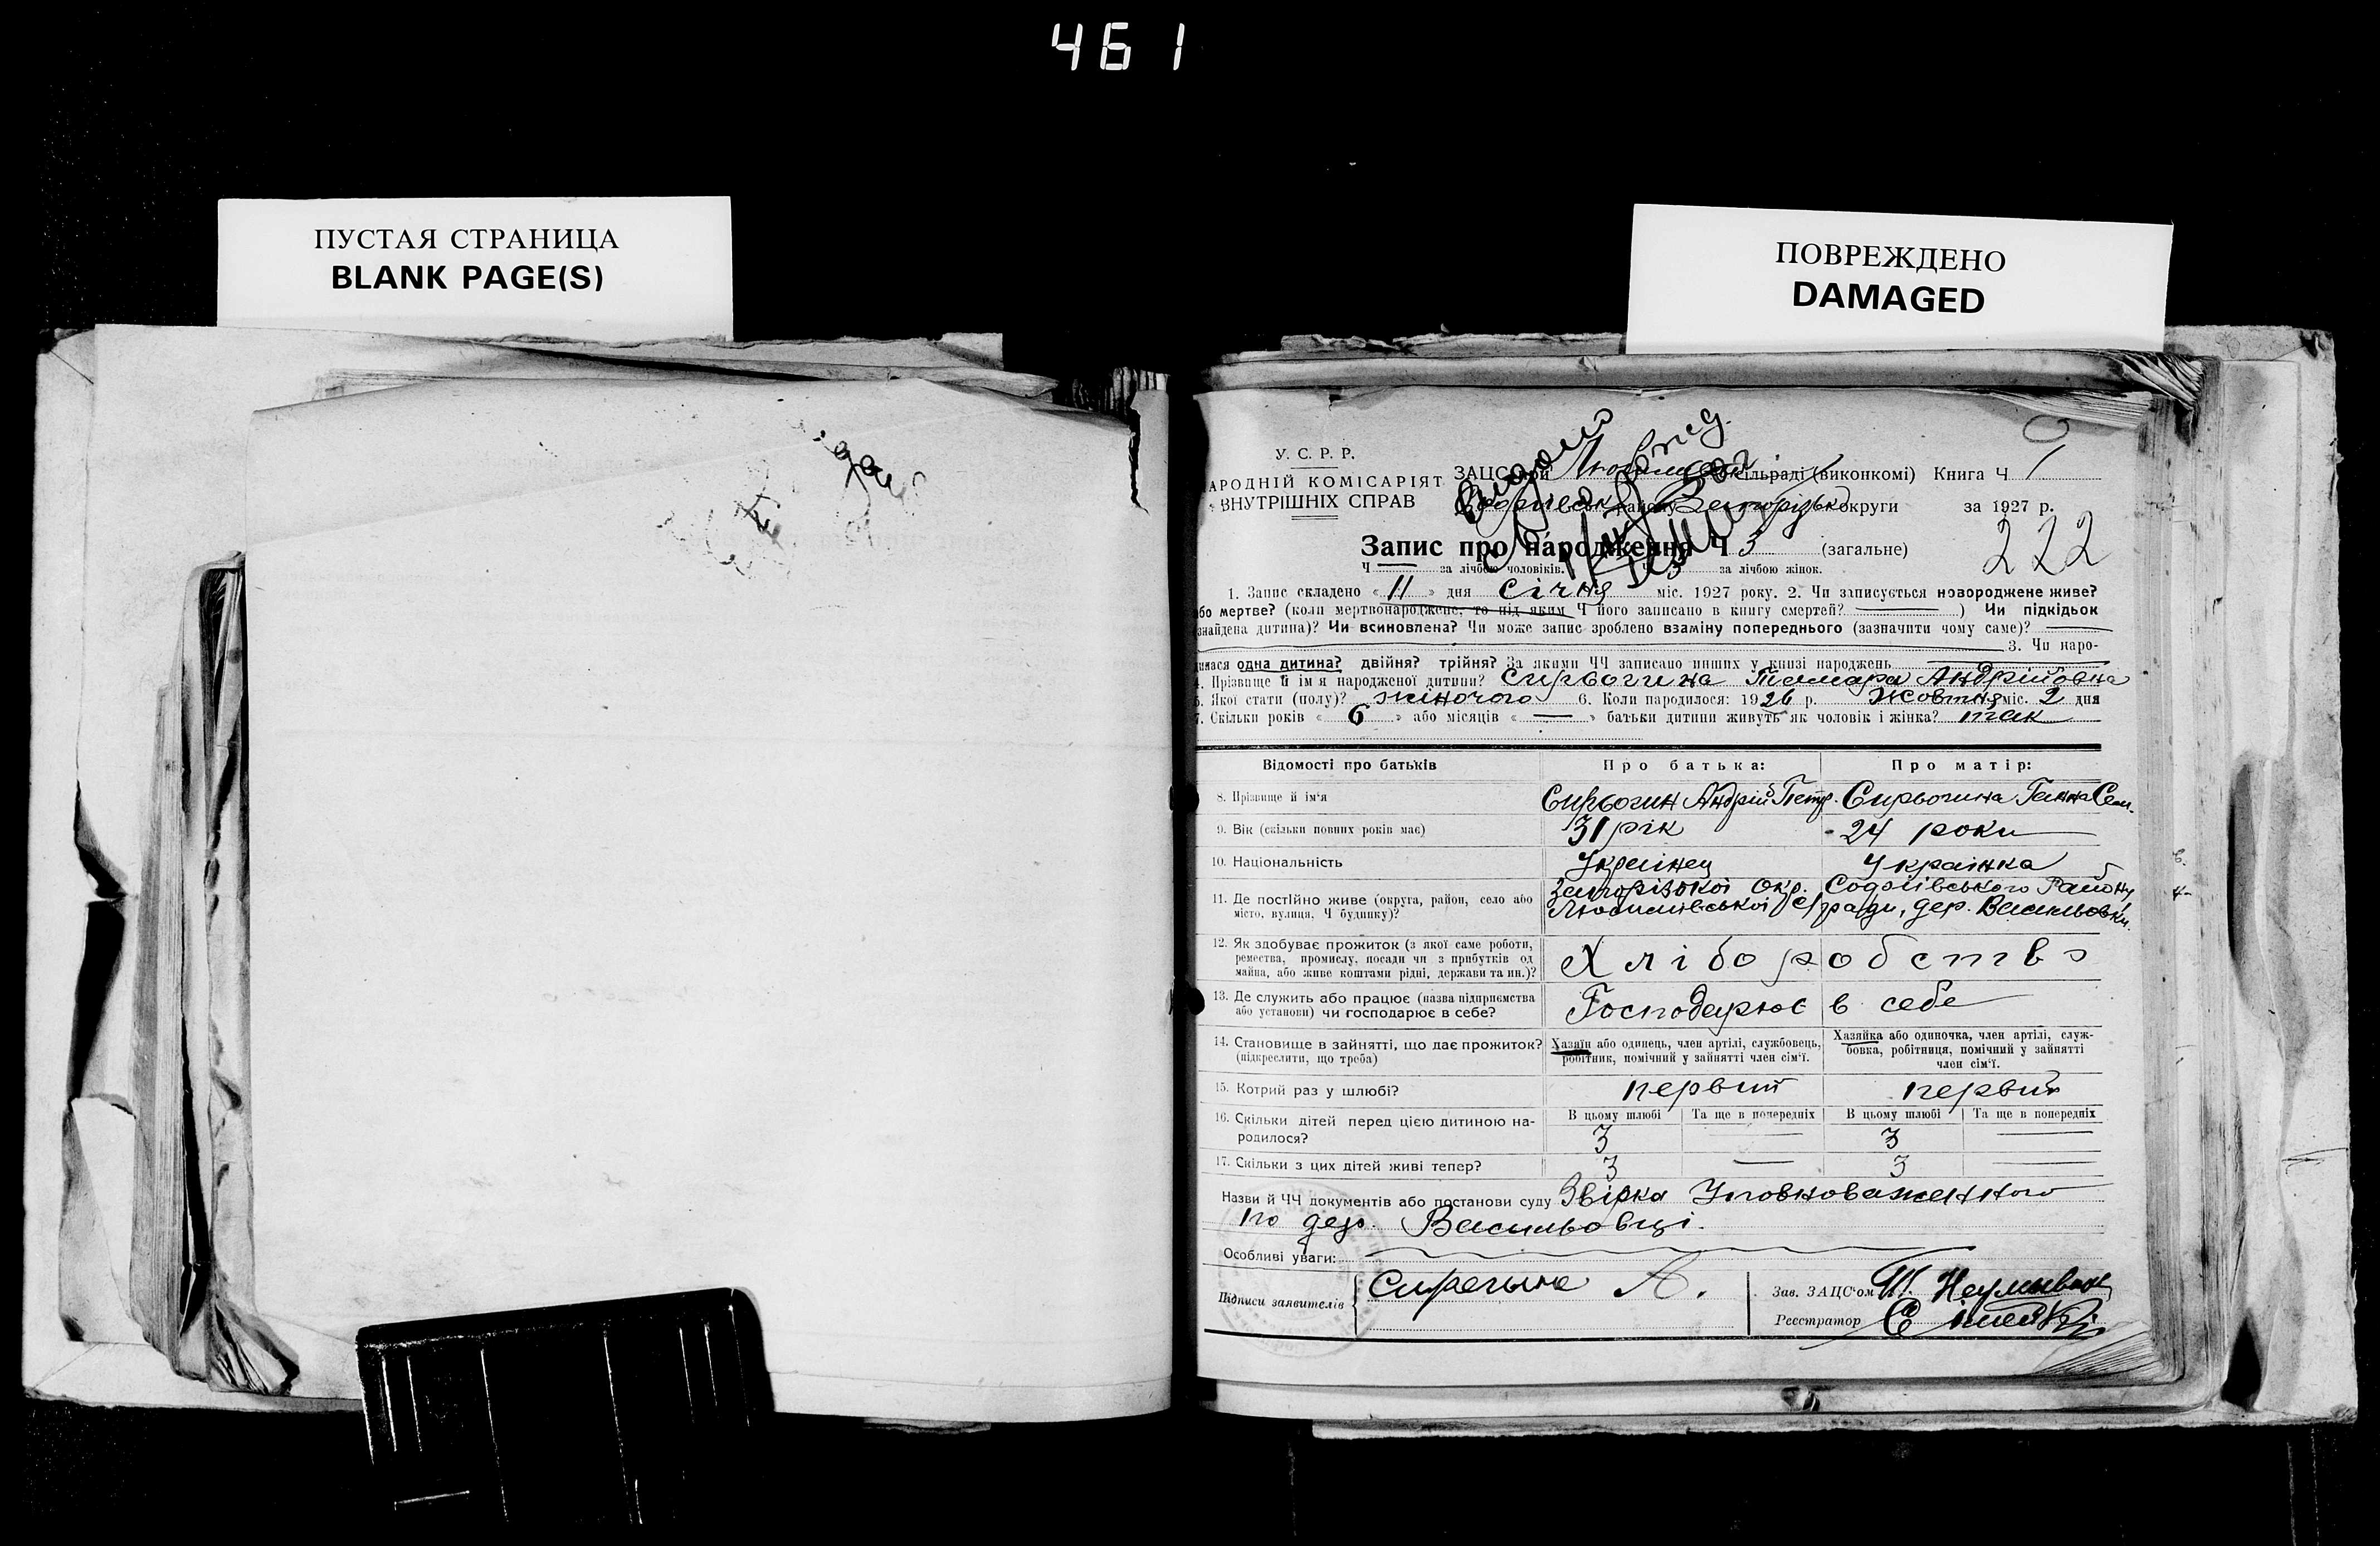 461
ПУСТАЯ СТРАНИЦА
BLANK PAGE(S)
ПОВРЕЖДЕНО
DAMAGED
У. С. Р. Р.
АРОДНІЙ КОМІСАРІЯТ
ВНУТРІШНІХ СПРАВ
ЗАЦС при сільраді (виконкомі) Книга Ч 1
району Запорізько округи за 1927 р.
222
Запис про народження Ч 3 (загальне)
Ч — за лічбою чоловіків. 3 за лічбою жінок.
1. Запис складено « 11 » дня Січня міс. 1927 року. 2. Чи записується новороджене живе?
бо мертве? (коли мертвонароджене, то під яким Ч його записано в книгу смертей? —) Чи підкідьок
знайдена дитина)? Чи всиновлена? Чи може запис зроблено взаміну попереднього (зазначити чому саме)? —
3. Чи наро-
илася одна дитина? двійня? трійня? За якими ЧЧ записано инших у книзі народжень
4. Прізвище й ім'я народженої дитини? Сирьогина Тамара Андрійовна
5. Якої стати (полу)? жіночого 6. Коли народилося: 1926 р. Жовтня міс. 2 дня
7. Скільки років « 6 » або місяців « — » батьки дитини живуть як чоловік і жінка? так
Відомості про батьків Про батька: Про матір:
8. Прізвище й ім'я Сирьогин Андрій Петр. Сирьогина Ганна Сем.
9. Вік (скільки повних років має) 31 рік 24 роки
10. Національність Українец Українка
11. Де постійно живе (округа, район, село або
місто, вулиця, Ч будинку)?
Запорізької Окр. Софіівського Району
с/ради, дер. Васильовки.
12. Як здобуває прожиток (з якої саме роботи,
ремества, промислу, посади чи з прибутків од
майна, або живе коштами рідні, держави та ин.)?
Хліборобство
13. Де служить або працює (назва підприємства
або установи) чи господарює в себе?
Господарює в себе
14. Становище в зайнятті, що дає прожиток?
(підкреслити, що треба)
Хазяїн або одинець, член артілі, службовець,
робітник, помічний у зайнятті член сім'ї.
Хазяйка або одиночка, член артілі, служ-
бовка, робітниця, помічний у зайнятті
член сім'ї.
15. Котрий раз у шлюбі? первий первий
16. Скільки дітей перед цією дитиною на-
родилося?
В цьому шлюбі Та ще в попередніх В цьому шлюбі Та ще в попередніх
3 — 3 —
17. Скільки з цих дітей живі тепер? 3 — 3 —
Назви й ЧЧ документів або постанови суду Звірка Уповноваженного
по дер. Васильовці.
Особливі уваги:
Підписи заявителів Сирегина А.
Зав. ЗАЦС'ом
Реєстратор